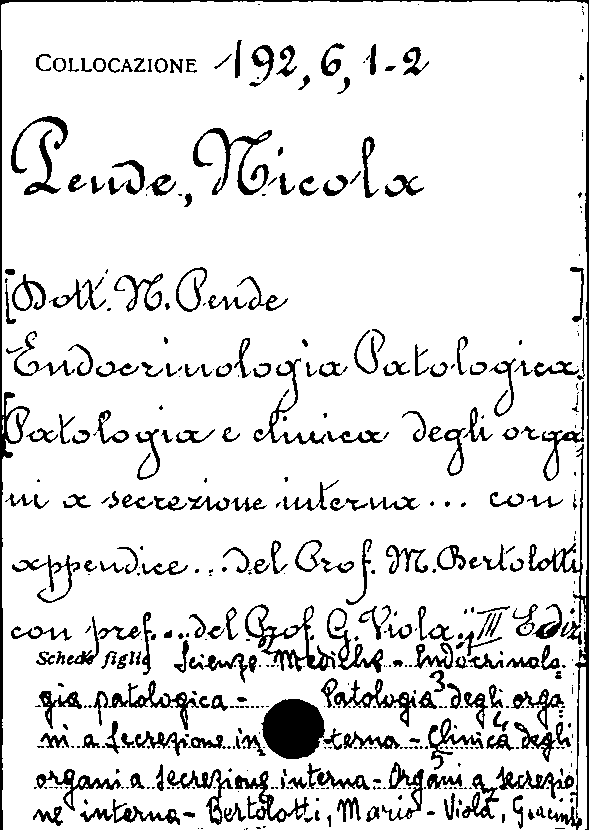 COLLOCAZIONE 192, 6, 1-2
Pende, Nicola
[Dott. N. Pende ]
Endocrinologia Patologica.
[Patologia e clinica degli orga
ni a secrezione interna... con
appendice... del Prof. M. Bertolotti
con pref... del Prof. G. Viola." III Ediz
Schede figlie Scienze Mediche - Endocrinolo
gia patologica - Patologia degli orga
ni a secrezione in terna - Clinica degli
organi a secrezione interna - Organi a secrezio
ne interna - Bertolotti, Mario - Viola, Giacinto